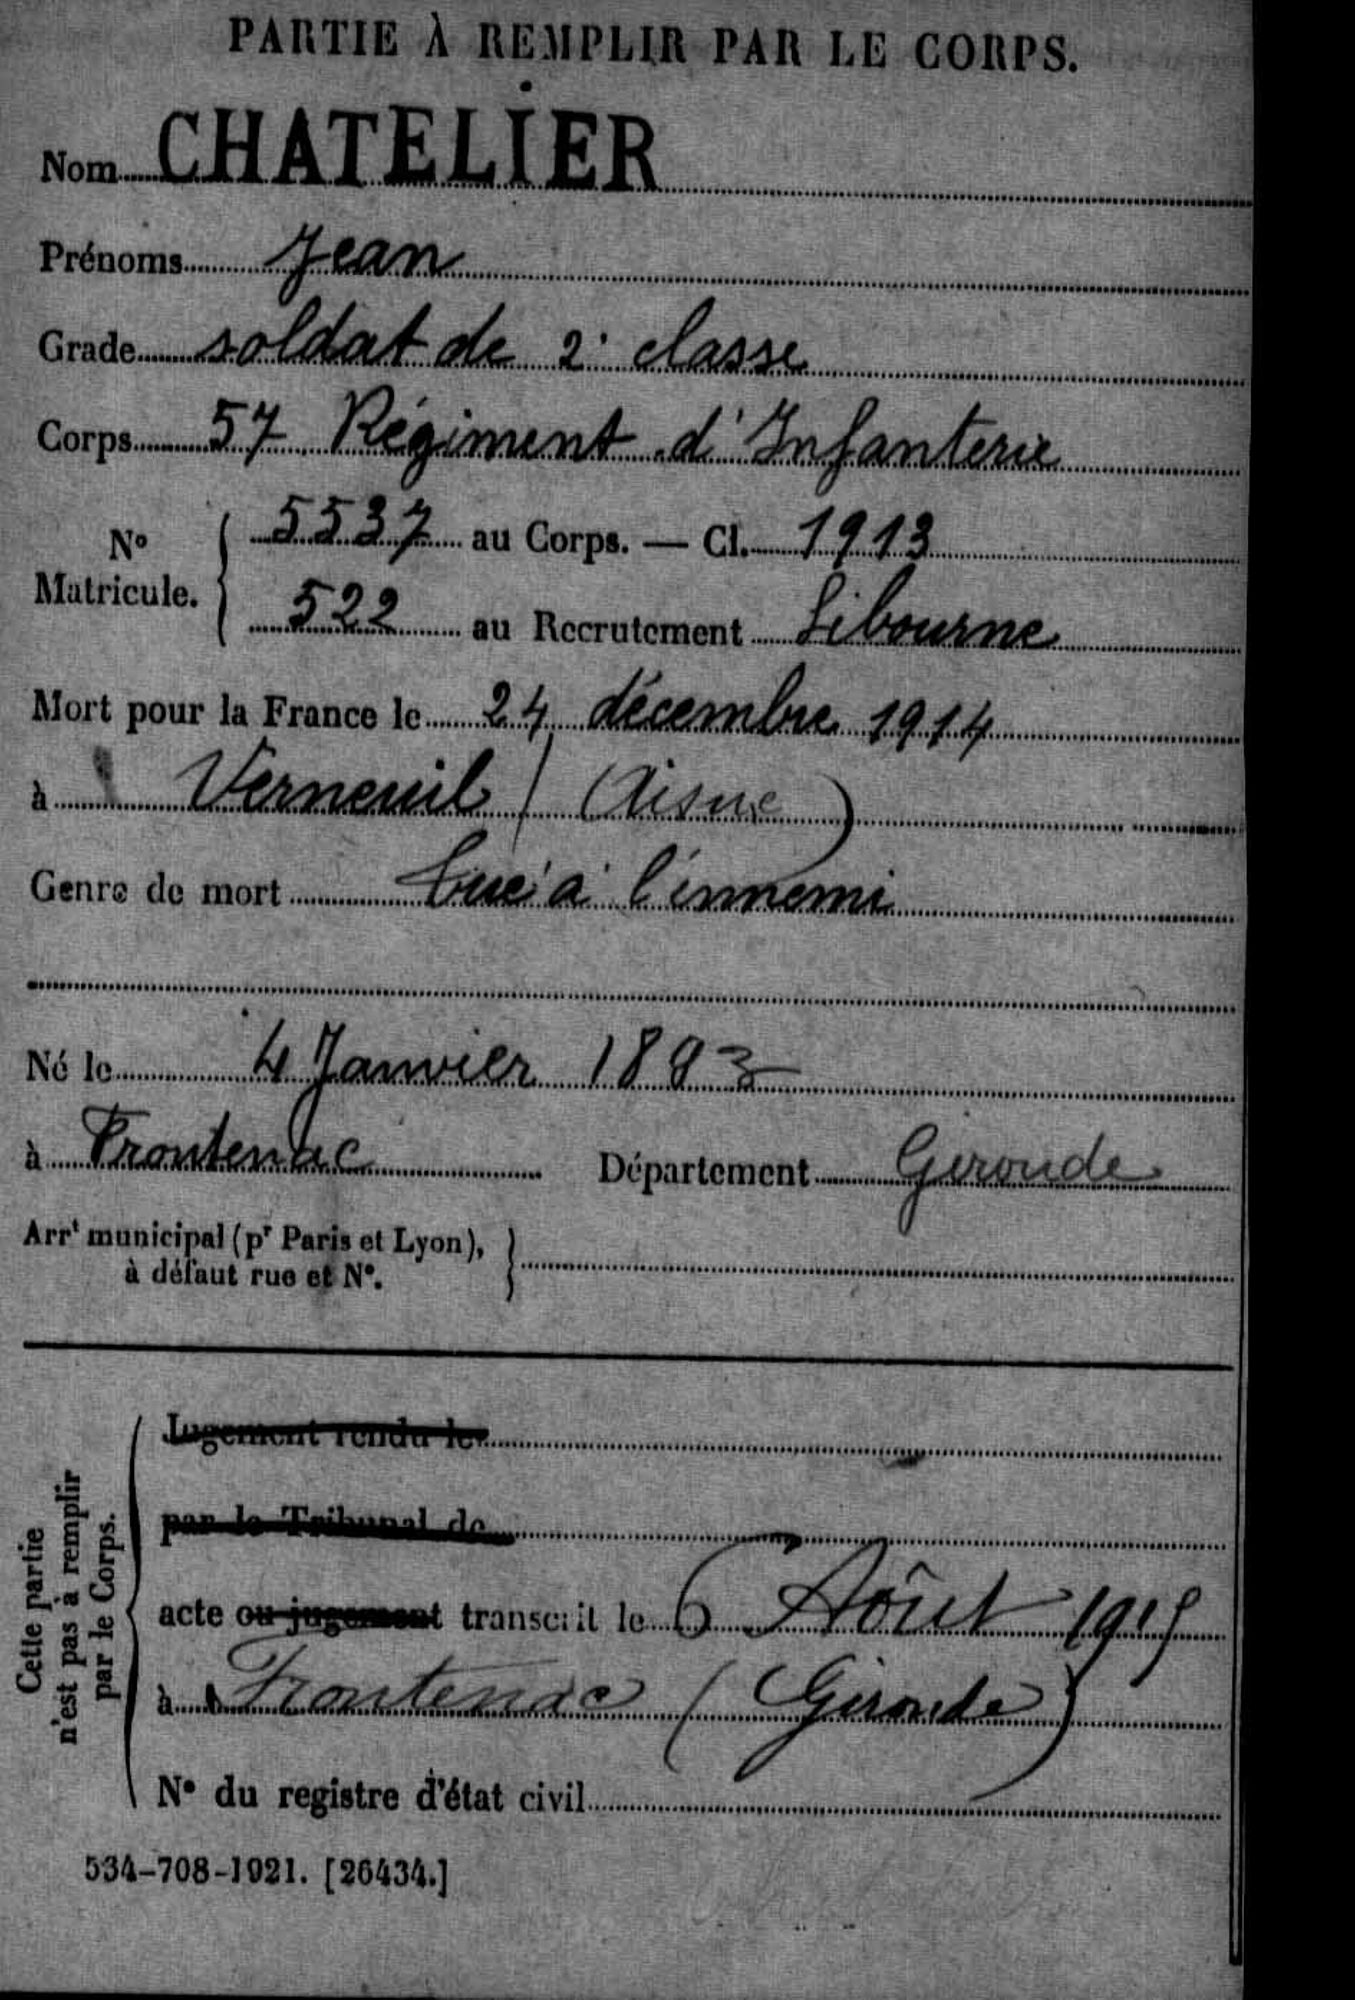 PARTIE À REMPLIR PAR LE CORPS.
Nom CHATELIER
Prénoms Jean
Grade soldat de 2e classe
Corps 57 Régiment d'Infanterie
No Matricule. { 5537 au Corps. — Cl. 1913
522 au Recrutement Libourne
Mort pour la France le 24 décembre 1914
à Verneuil (Aisne)
Genre de mort tué à l'ennemi
Né le 4 Janvier 1893
à Frontenac Département Gironde
Arrt municipal (pr Paris et Lyon),
à défaut rue et No.
Cette partie
n'est pas à remplir
par le Corps.
Jugement rendu le
par le Tribunal de
acte ou jugement transcrit le 6 Août 1915
à Frontenac (Gironde)
No du registre d'état civil
534-708-1921. [26434.]